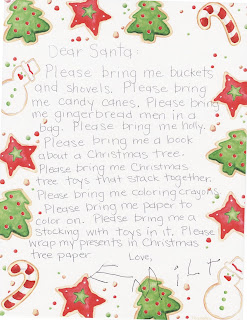 Dear Santa:
Please bring me buckets
and shovels. Please bring
me candy canes. Please bring
me gingerbread men in a
bag. Please bring me holly.
Please bring me a book
about a Christmas tree.
Please bring me Christmas
tree toys that stack together.
Please bring me coloring crayons.
Please bring me paper to
color on. Please bring me a
stocking with toys in it. Please
wrap my presents in Christmas
tree paper.
Love,